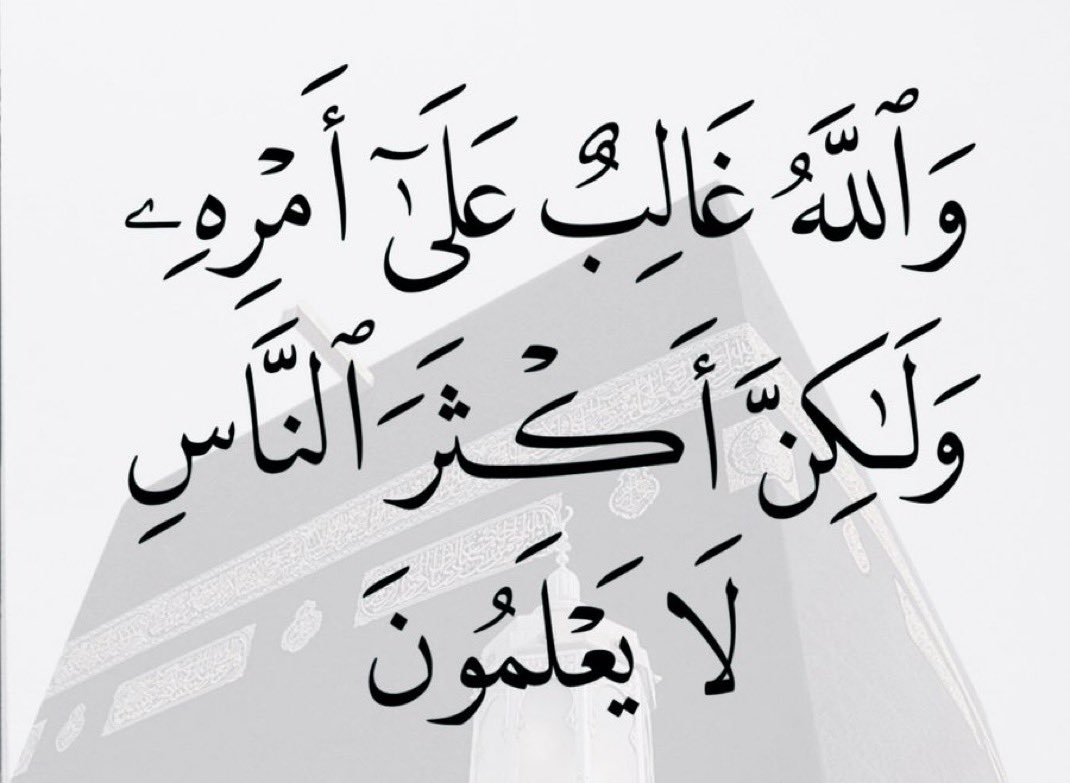 وَٱللَّهُ غَالِبٌ عَلَىٰٓ أَمْرِهِۦ
وَلَـٰكِنَّ أَكْثَرَ ٱلنَّاسِ
لَا يَعْلَمُونَ